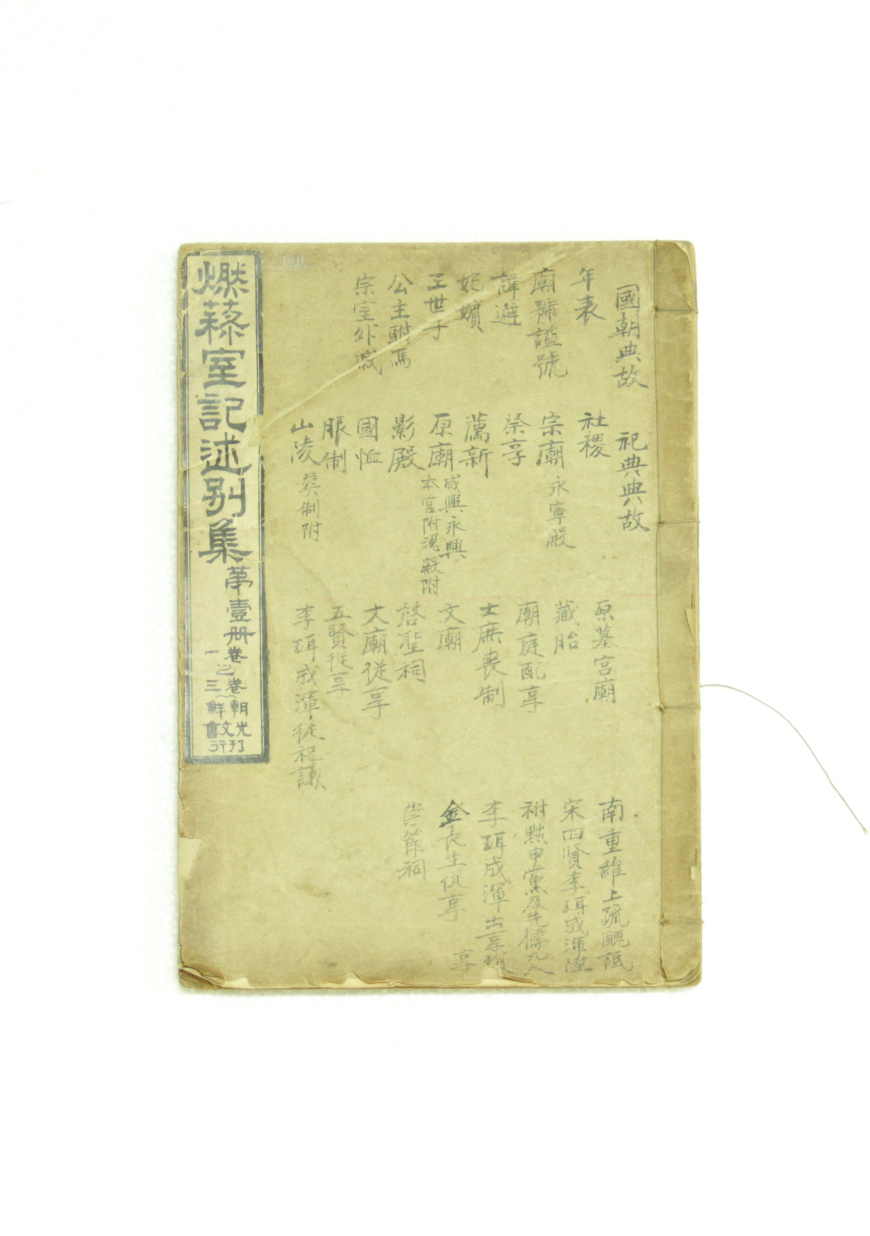 國朝典故
年表
廟號諡號
諱避
妃嬪
王世子
公主駙馬
宗室外戚
祀典典故
社稷
宗廟 永寧殿
祭享
薦新
原廟 咸興永興
本宮附 殿附
影殿
國恤
服制
山陵 葬制附
原墓宮廟
藏胎
廟庭配享
士庶喪制
文廟
啓聖祠
文廟從享
五賢從享
李珥成渾從祀議
南重維上疏醜詆
宋四賢李珥成渾陞
附黜申黨及先儒九人
李珥成渾出享
金長生從享
崇節祠
燃藜室記述別集
第壹册
卷一之卷三
朝鮮光文會刊行